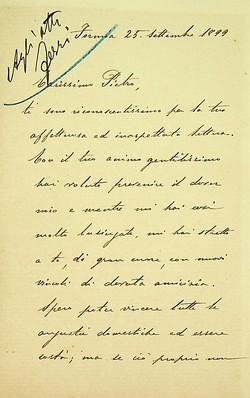 Agli atti
Ferri
Fermo 25. settembre 1899
Carissimo Pietro,
ti sono riconoscentissimo per la tua
affettuosa ed inaspettata lettera.
Con il tuo animo gentilissimo
hai voluto prevenire il dover
mio e mentre mi hai così
molto lusingato, mi hai stretto
a te, di gran cuore, con nuovi
vincoli di devota amicizia.
Spero poter vincere tutte le
angustie domestiche ed essere
costà; ma se ciò proprio non